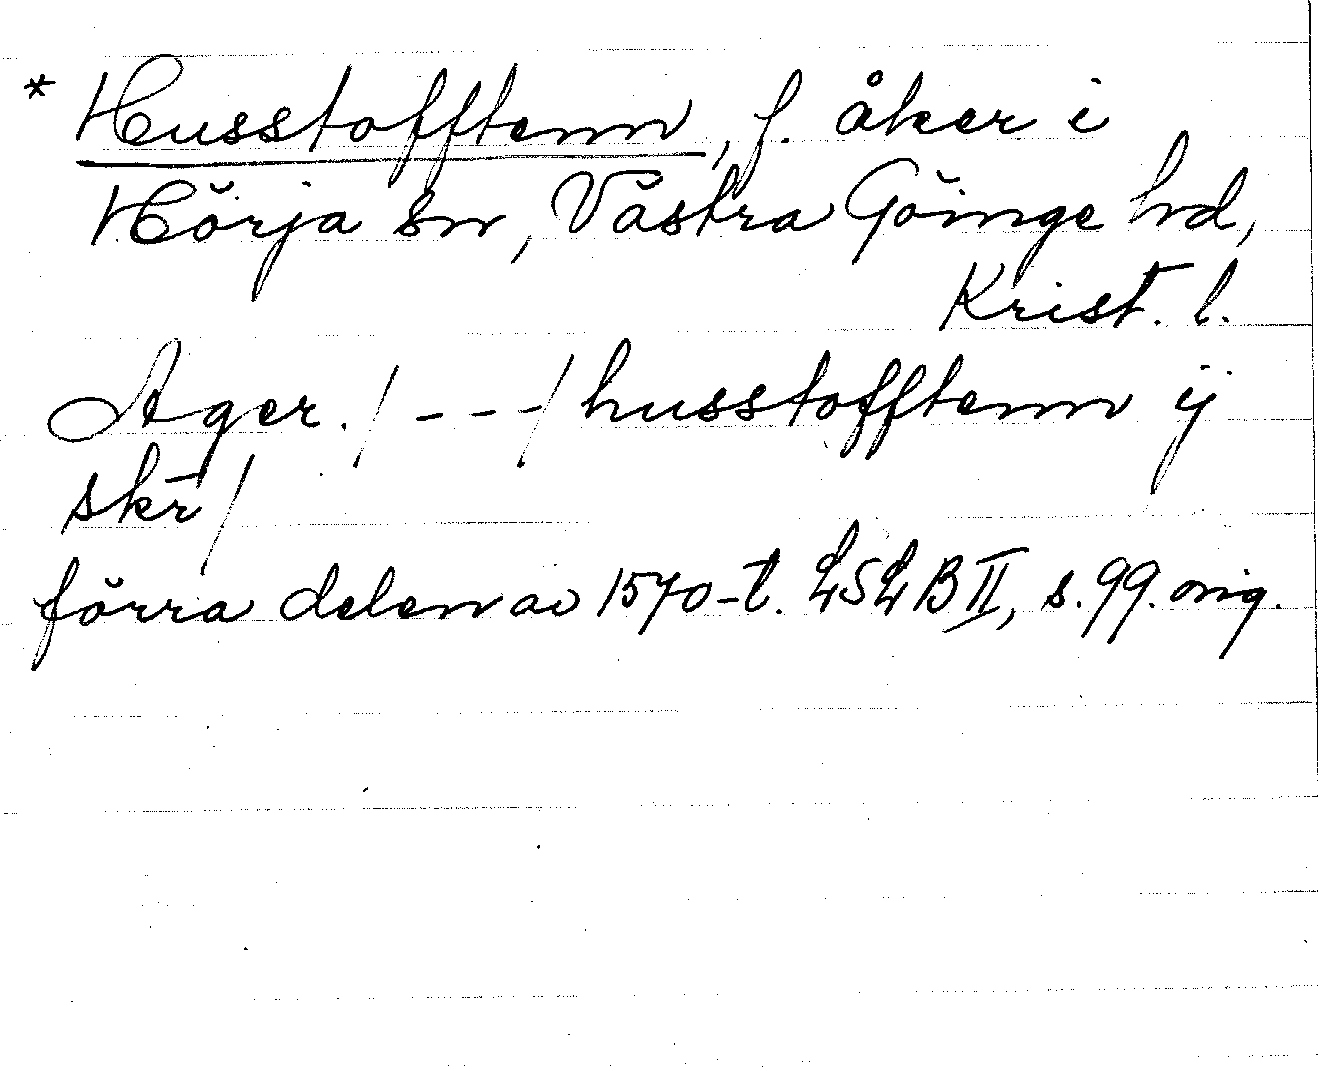 * Husstofftenn, f. åker i
Hörja sn, Västra Göinge hd,
Krist. l.
Ager. / - - - / husstofftenn ij
skr̄ /
förra delen av 1570-t. LSLB II, s. 99. orig.